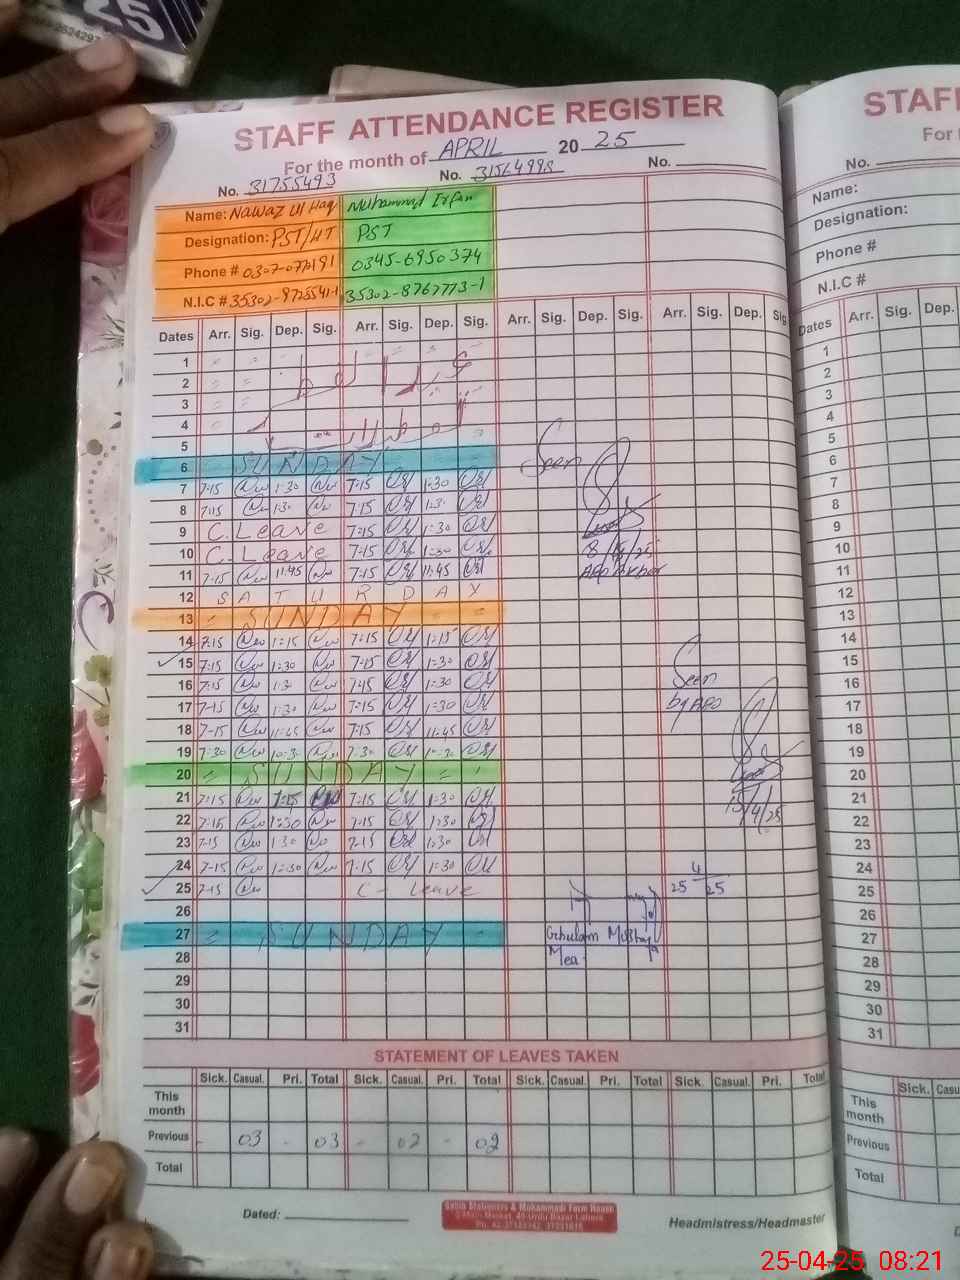 25
STAFF ATTENDANCE REGISTER
For the month of APRIL 20 25
No. 31755493 No. 31564998 No.
Name: Nawaz Ul Haq Muhammad Irfan
Designation: PST/HT PST
Phone # 0345-6950374
N.I.C # 35302-8767773-1
Dates Arr. Sig. Dep. Sig. Arr. Sig. Dep. Sig. Arr. Sig. Dep. Sig. Arr. Sig. Dep. Sig
1
2
3
4
5
6 SUNDAY
7 7-15 1:30 7-15 1:30
8 7-15 1:30 7-15 1:30
9 C. Leave 7-15 1:30
10 C. Leave 7-15 1:30
11 7-15 11:45 7-15 11:45
12 SATURDAY
13 SUNDAY
14 7-15 1:15 7-15 1:15
15 7-15 1:30 7-15 1:30
16 7-15 1:30 1:30
17 7-15 1:30 7-15 1:30
18 7-15 11:45 7-15 11:45
19 7:30 10:30 7:30 10:30
20 = SUNDAY =
21 7:15 7:15 1:30
22 7:15 1:30 7:15 1:30
23 7-15 1:30 7-15 1:30
24 7-15 1:30 7-15 1:30
25 7-15 C- Leave
26
27 = SUNDAY =
28
29
30
31
Seen
8/4/25
Seen
by AEO
15/4/25
25 4/25
Ghulam Mustafa
Mea
STATEMENT OF LEAVES TAKEN
Sick. Casual. Pri. Total Sick. Casual. Pri. Total Sick. Casual. Pri. Total Sick. Casual. Pri. Total
This month
Previous - 03 - 03 - 02 - 02
Total
Dated:
Headmistress/Headmaster
STAF
For t
No.
Name:
Designation:
Phone #
N.I.C #
Dates Arr. Sig. Dep.
1
2
3
4
5
6
7
8
9
10
11
12
13
14
15
16
17
18
19
20
21
22
23
24
25
26
27
28
29
30
31
Sick. Casu
This month
Previous
Total
25-04-25 08:21